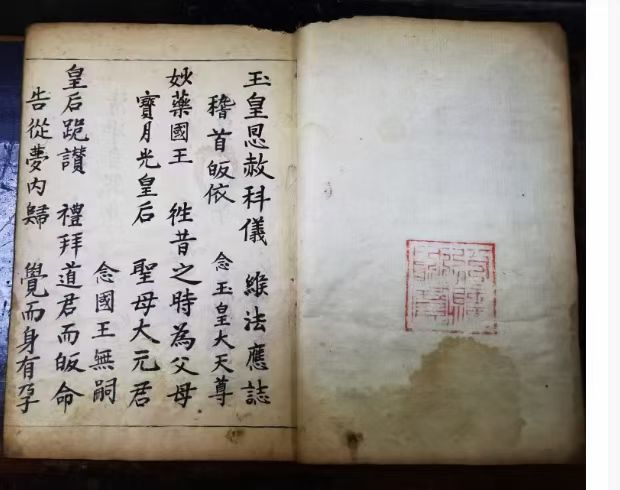 玉皇恩赦科儀 維法應誌
稽首皈依 念玉皇大天尊
妙藥國王 徃昔之時為父母
寶月光皇后 聖母大元君
念國王無嗣
皇后跪讃 禮拜道君而皈命
告從夢内歸 覺而身有孕